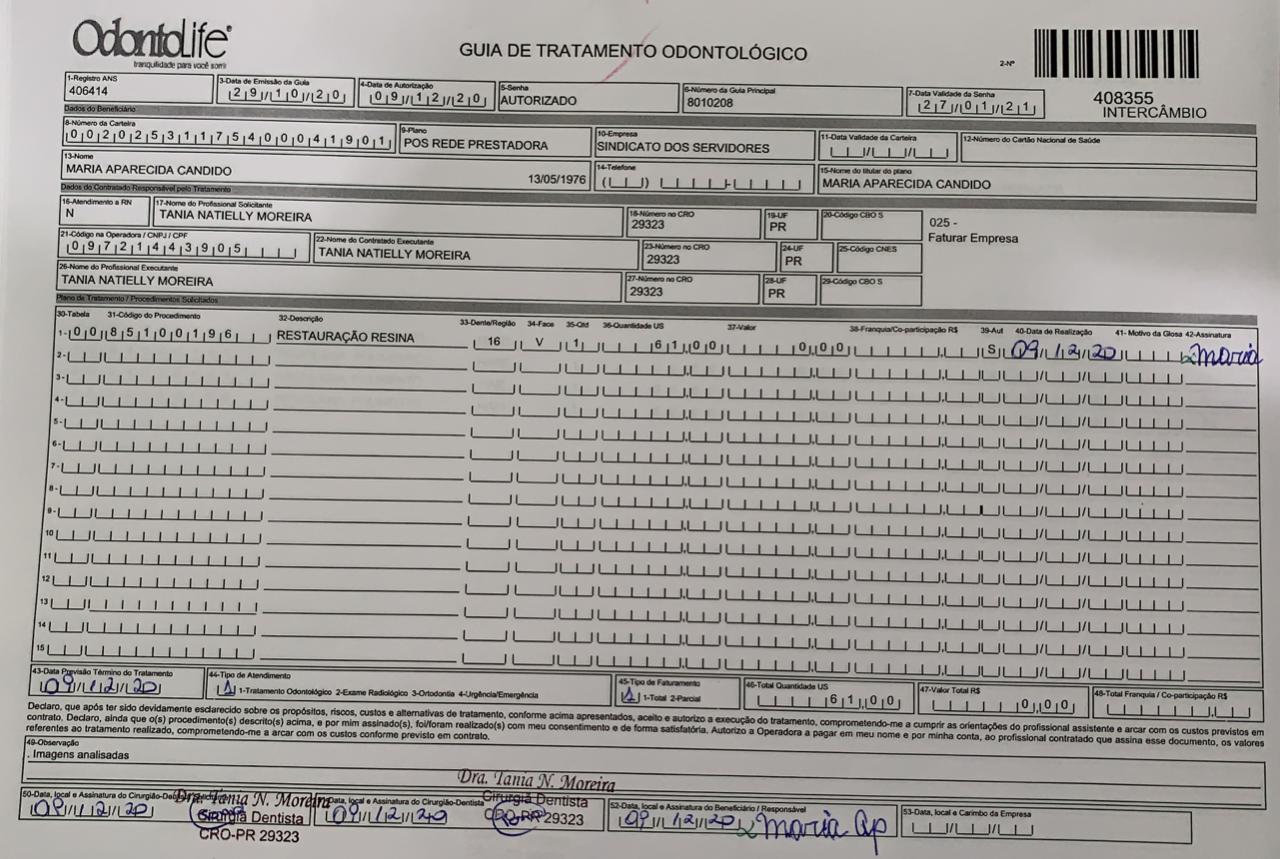 OdontoLife®
tranquilidade para você sorrir
GUIA DE TRATAMENTO ODONTOLÓGICO
2-Nº
408355
INTERCÂMBIO
1-Registro ANS
406414
3-Data de Emissão da Guia
29/10/20
4-Data de Autorização
09/12/20
5-Senha
AUTORIZADO
6-Número da Guia Principal
8010208
7-Data Validade da Senha
27/01/21
Dados do Beneficiário
8-Número da Carteira
00202531175400041901
9-Plano
POS REDE PRESTADORA
10-Empresa
SINDICATO DOS SERVIDORES
11-Data Validade da Carteira
12-Número do Cartão Nacional de Saúde
13-Nome
MARIA APARECIDA CANDIDO 13/05/1976
14-Telefone
15-Nome do titular do plano
MARIA APARECIDA CANDIDO
Dados do Contratado Responsável pelo Tratamento
16-Atendimento a RN
N
17-Nome do Profissional Solicitante
TANIA NATIELLY MOREIRA
18-Número no CRO
29323
19-UF
PR
20-Código CBO S
025 -
Faturar Empresa
21-Código na Operadora / CNPJ / CPF
09721443905
22-Nome do Contratado Executante
TANIA NATIELLY MOREIRA
23-Número no CRO
29323
24-UF
PR
25-Código CNES
26-Nome do Profissional Executante
TANIA NATIELLY MOREIRA
27-Número no CRO
29323
28-UF
PR
29-Código CBO S
Plano de Tratamento / Procedimentos Solicitados
30-Tabela 31-Código do Procedimento 32-Descrição 33-Dente/Região 34-Face 35-Qtd 36-Quantidade US 37-Valor 38-Franquia/Co-participação R$ 39-Aut 40-Data de Realização 41- Motivo da Glosa 42-Assinatura
1- 00 85100196 RESTAURAÇÃO RESINA 16 V 1 61,00 0,00 S 09/12/20 Maria
2-
3-
4-
5-
6-
7-
8-
9-
10
11
12
13
14
15
43-Data Previsão Término do Tratamento
09/12/20
44-Tipo de Atendimento
1 1-Tratamento Odontológico 2-Exame Radiológico 3-Ortodontia 4-Urgência/Emergência
45-Tipo de Faturamento
1 1-Total 2-Parcial
46-Total Quantidade US
61,00
47-Valor Total R$
0,00
48-Total Franquia / Co-participação R$
Declaro, que após ter sido devidamente esclarecido sobre os propósitos, riscos, custos e alternativas de tratamento, conforme acima apresentados, aceito e autorizo a execução do tratamento, comprometendo-me a cumprir as orientações do profissional assistente e arcar com os custos previstos em
contrato. Declaro, ainda que o(s) procedimento(s) descrito(s) acima, e por mim assinado(s), foi/foram realizado(s) com meu consentimento e de forma satisfatória. Autorizo a Operadora a pagar em meu nome e por minha conta, ao profissional contratado que assina esse documento, os valores
referentes ao tratamento realizado, comprometendo-me a arcar com os custos conforme previsto em contrato.
49-Observação
. Imagens analisadas
50-Data, local e Assinatura do Cirurgião-Dentista
09/12/20
Dra. Tania N. Moreira
Cirurgiã Dentista
CRO-PR 29323
Data, local e Assinatura do Cirurgião-Dentista
09/12/20
Dra. Tania N. Moreira
Cirurgiã Dentista
CRO-PR 29323
52-Data, local e Assinatura do Beneficiário / Responsável
09/12/20 Maria Ap
53-Data, local e Carimbo da Empresa